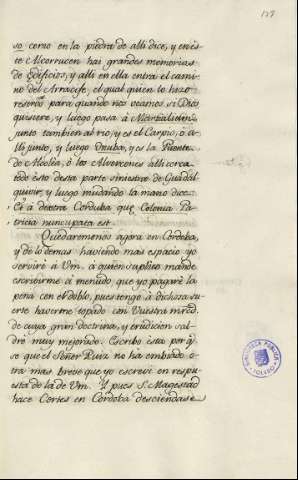 127
so como en la piedra de alli dice, y en es-
te Alcorrucen hai grandes memorias
de Edificios, y alli en ella entra el cami-
no del Arracife, el qual quien lo hizo
para quando nos veamos si Dios
quisiere, y luego pasa à
junto tambien al rio, y es el Carpio, ò a-
lli junto, y luego y es la Puente
de Alcolea, ò los Alverrones alli cerca
todo ésto desta parte siniestra de Guadal-
quivir, y luego mudando la mano dice.
Et à dextra Corduba que Colonia Pa-
tricia nuncupata est.
Quedaremonos agora en Cordoba,
y de lo demas haviendo mas espacio yo
serviré à Vm. à quien suplico mande
escrivirme à menudo que yo pagaré la
pena con el doblo, pues tengo à dichosa su-
erte haverme topado con Vuestra mrẽd.
de cuya gran doctrina, y erudicion sal-
dré muy mejorado. Escribo ésta por q.̃
sè que el Señor Ruiz no ha embiado ò-
tra mas breve que yo escrevi en respu-
esta de la de Vm. Y pues S. Magestad
hace Cortes en Cordoba desciendase
BIBLIOTECA PUBLICA
TOLEDO